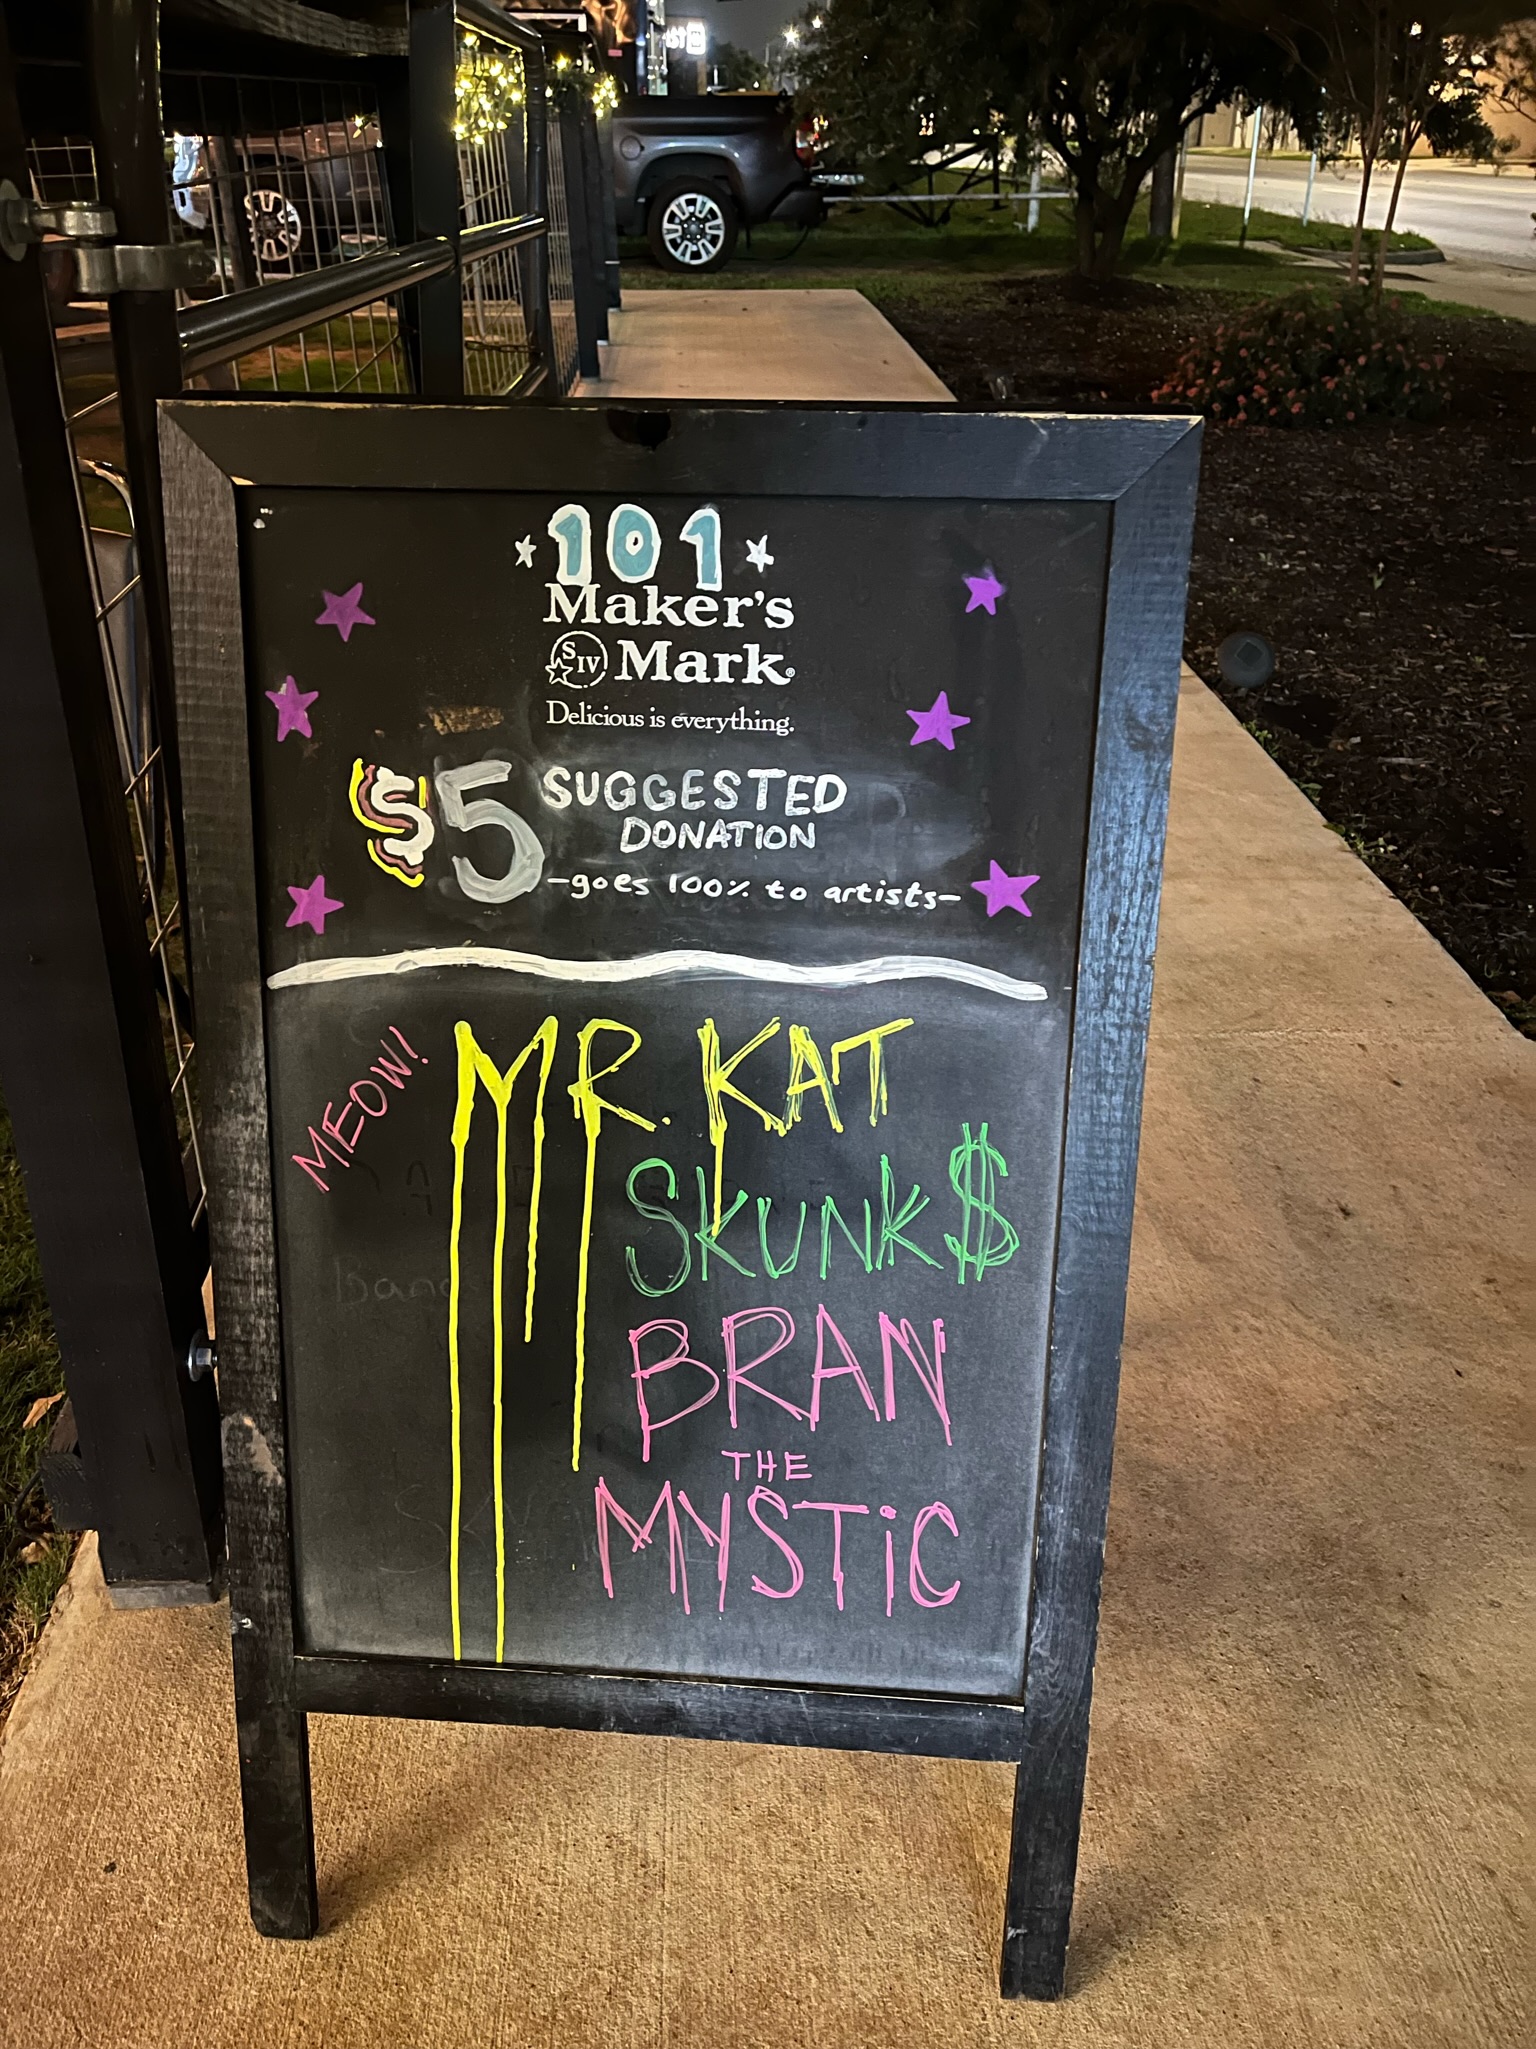 101
Maker's
SIV Mark®
Delicious is everything.
$5 SUGGESTED
DONATION
-goes 100% to artists-
MEOW!
MR. KAT
SKUNK$
BRAN
THE
MYSTiC
Band